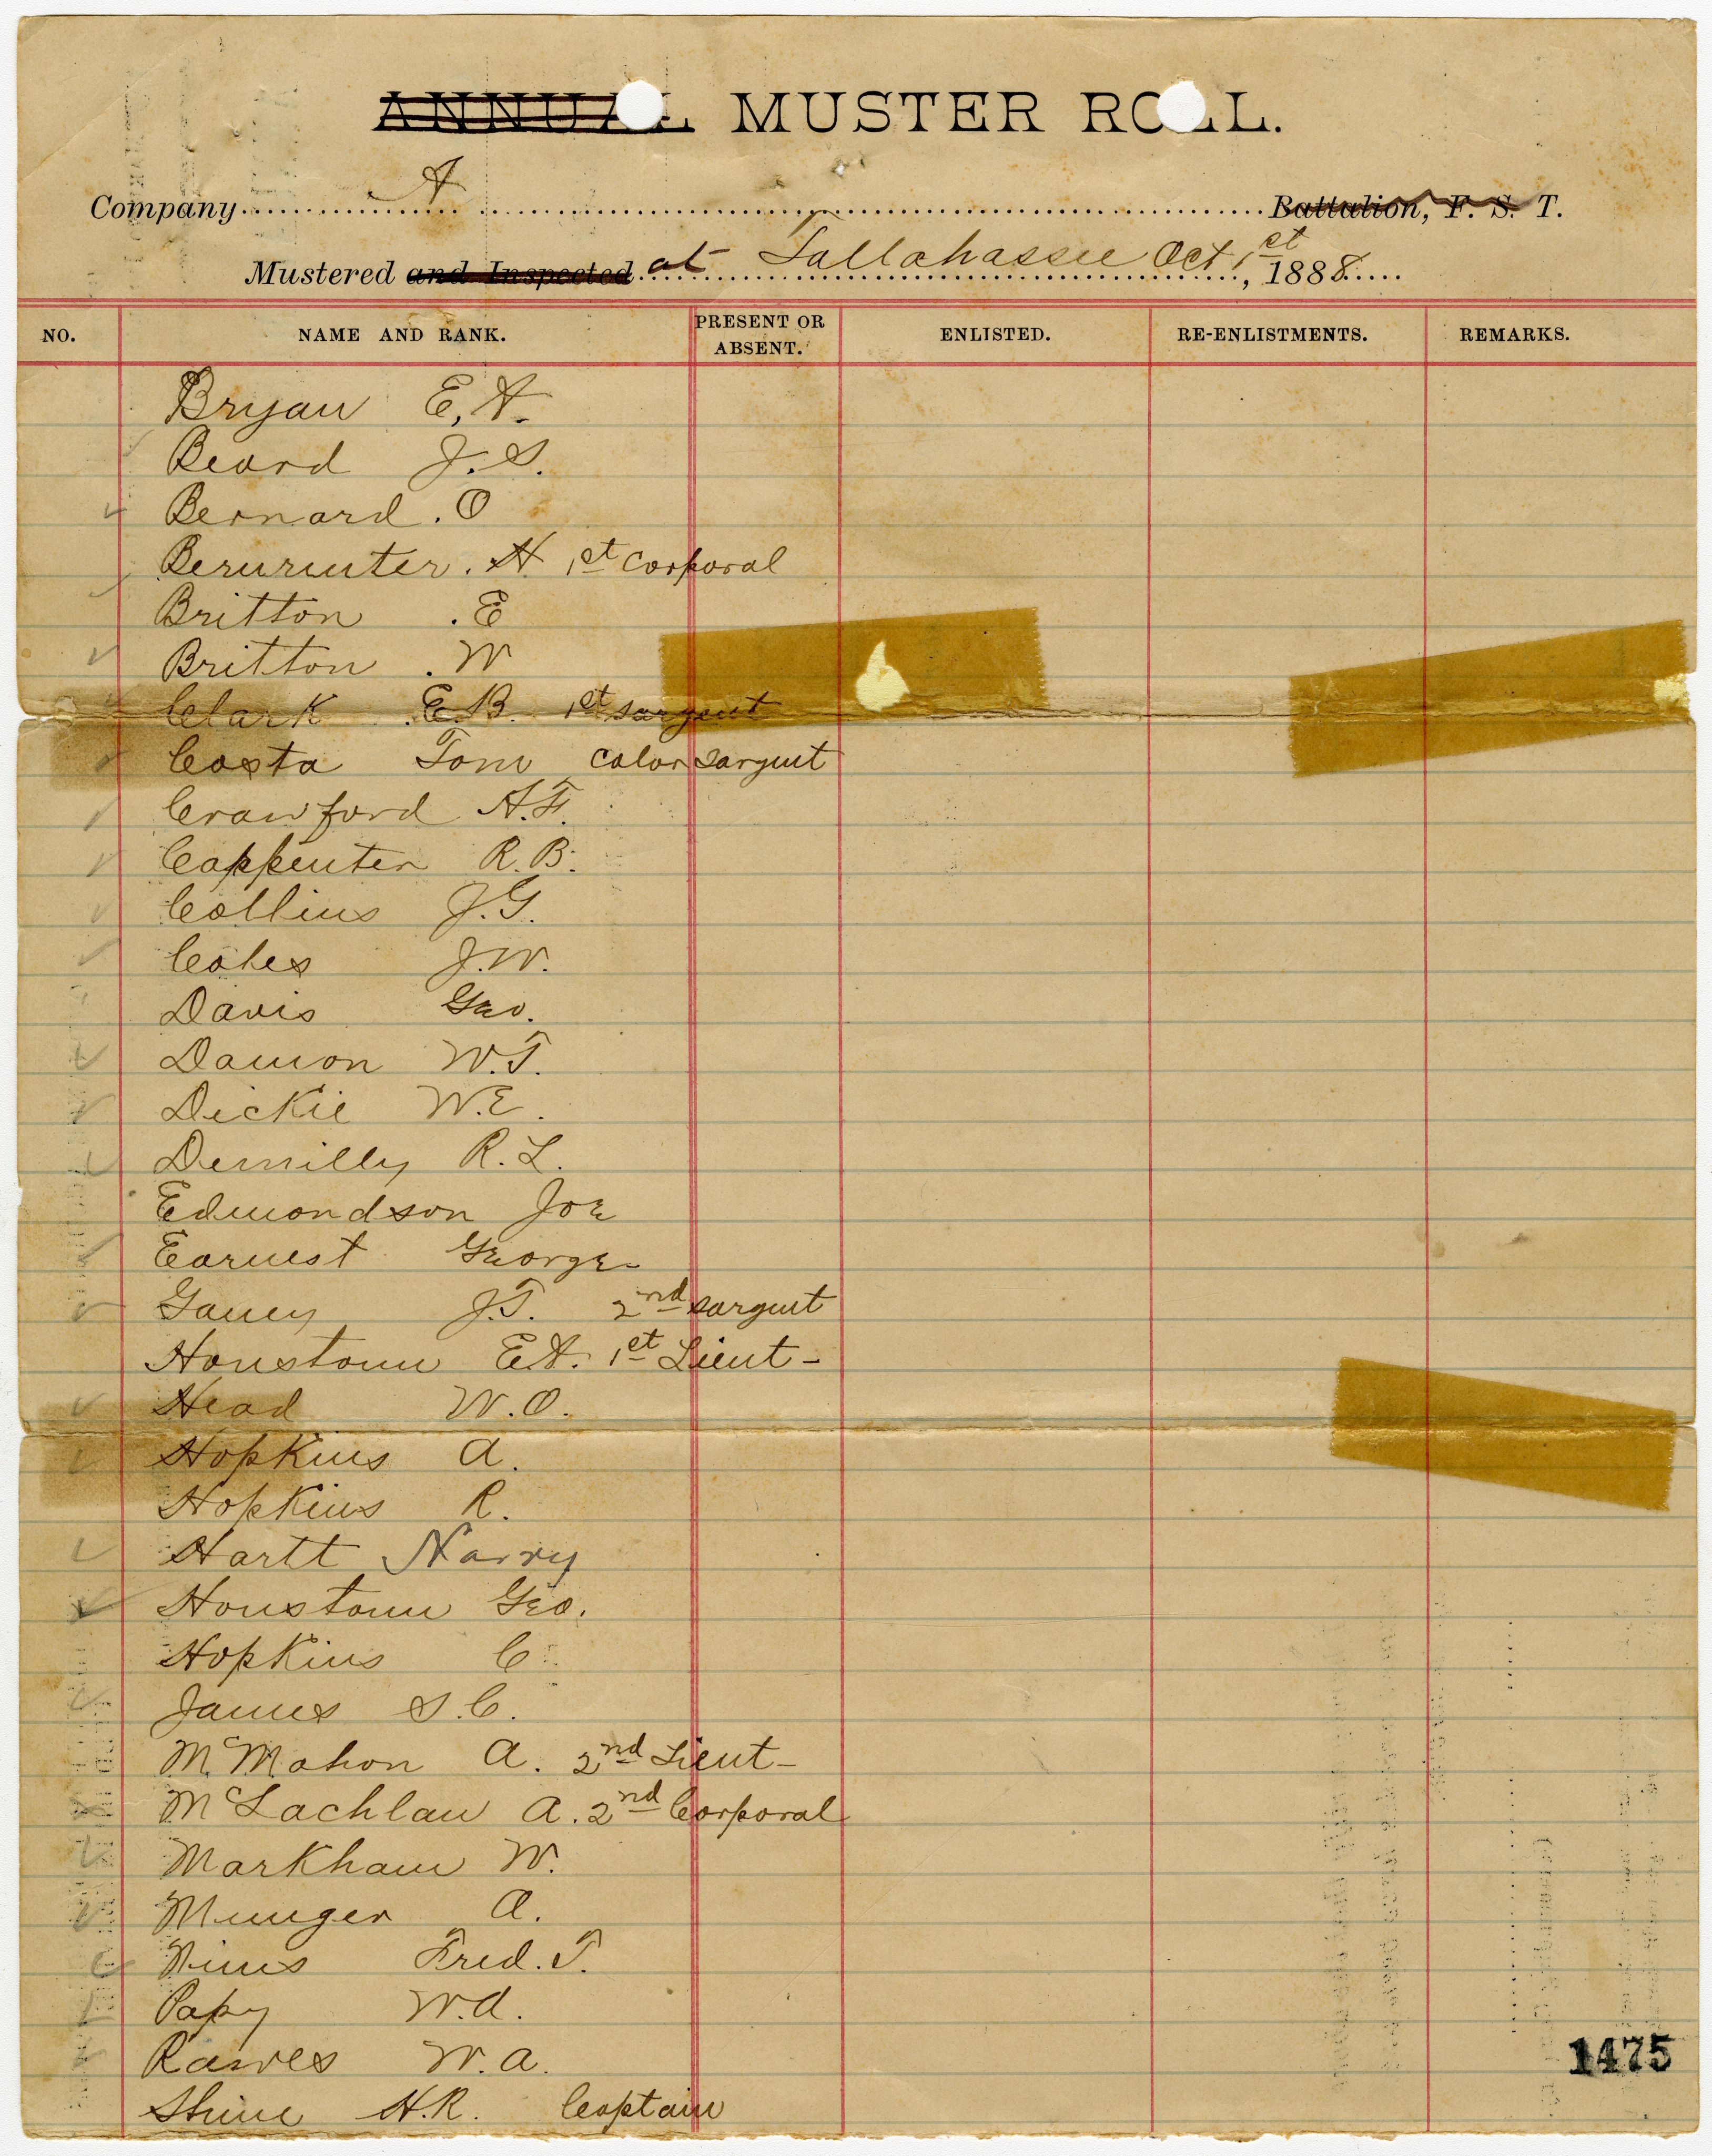 ANNUAL MUSTER ROLL.
Company A Battalion, F. S. T.
Mustered and Inspected at Tallahassee Oct 1st, 1888
NO. NAME AND RANK. PRESENT OR ABSENT. ENLISTED. RE-ENLISTMENTS. REMARKS.
Bryan E, H.
Beard J. S.
Bernard. O
Bernreuter. H 1st Corporal
Britton .E
Britton .W
Clark .E.B. 1st Sargent
Costa Tom Color Sargent
Crawford H.F.
Cappenter R.B.
Collins J.G.
Coles J.W.
Davis Geo.
Damon W.T.
Dickie W.E.
Demilly R.L.
Edmondson Joe
Earnest George
Ganey J.T. 2nd Sargent
Houstoun E.H. 1st Lieut-
Head W.O.
Hopkins A.
Hopkins R.
Hartt Harry
Houstoun Geo.
Hopkins C.
James S.C.
McMahon A. 2nd Lieut-
McLachlan A. 2nd Corporal
Markham W.
Munger A.
Nims Fred. T.
Papy W.A.
Rawes W.A.
1475
Shine H.R. Captain